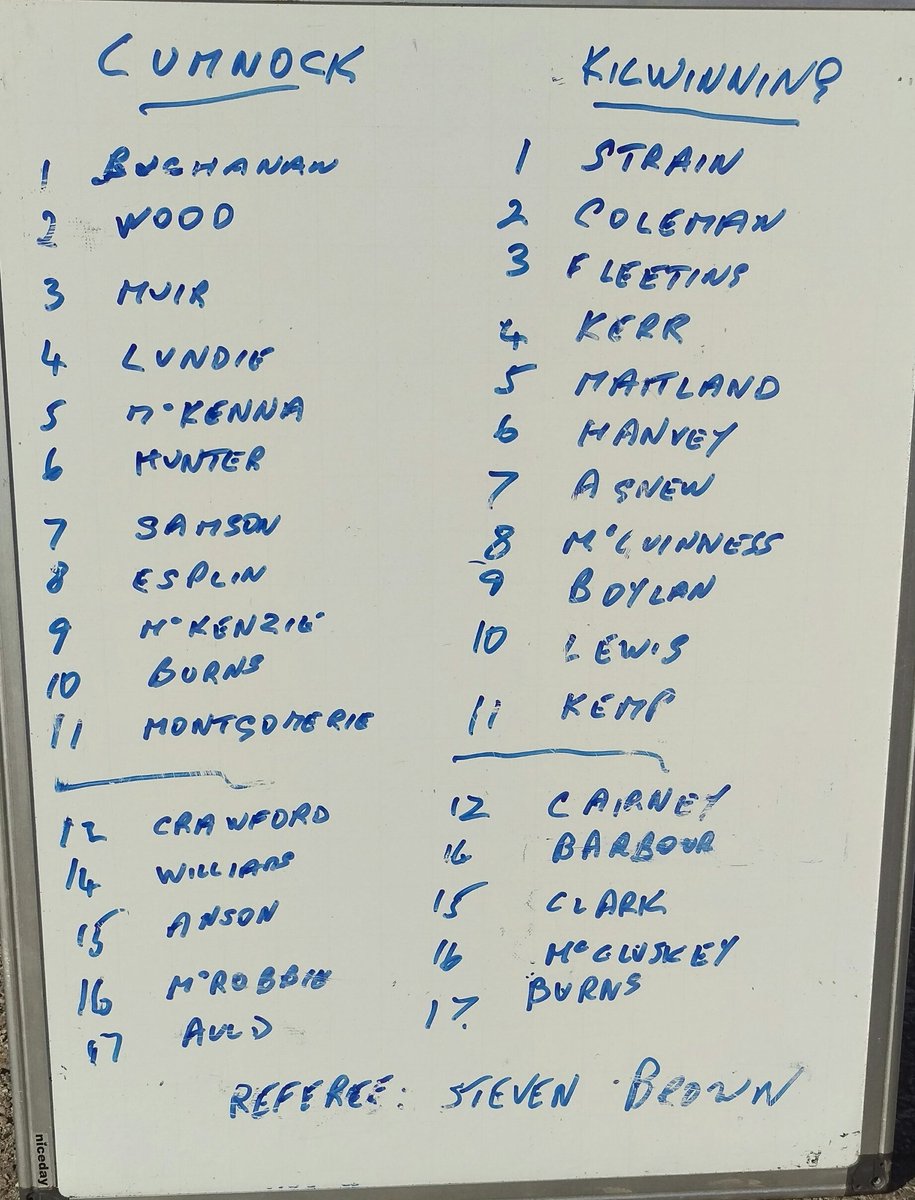 CUMNOCK
1 BUCHANAN
2 WOOD
3 MUIR
4 LUNDIE
5 McKENNA
6 HUNTER
7 SAMSON
8 ESPLIN
9 McKENZIE
10 BURNS
11 MONTGOMERIE
12 CRAWFORD
14 WILLIAMS
15 ANSON
16 McROBBIE
17 AULD
KILWINNING
1 STRAIN
2 COLEMAN
3 FLEETING
4 KERR
5 MAITLAND
6 HANVEY
7 AGNEW
8 McGUINNESS
9 BOYLAN
10 LEWIS
11 KEMP
12 CAIRNEY
16 BARBOUR
15 CLARK
16 McCLUSKEY
17. BURNS
REFEREE: STEVEN BROWN
niceday